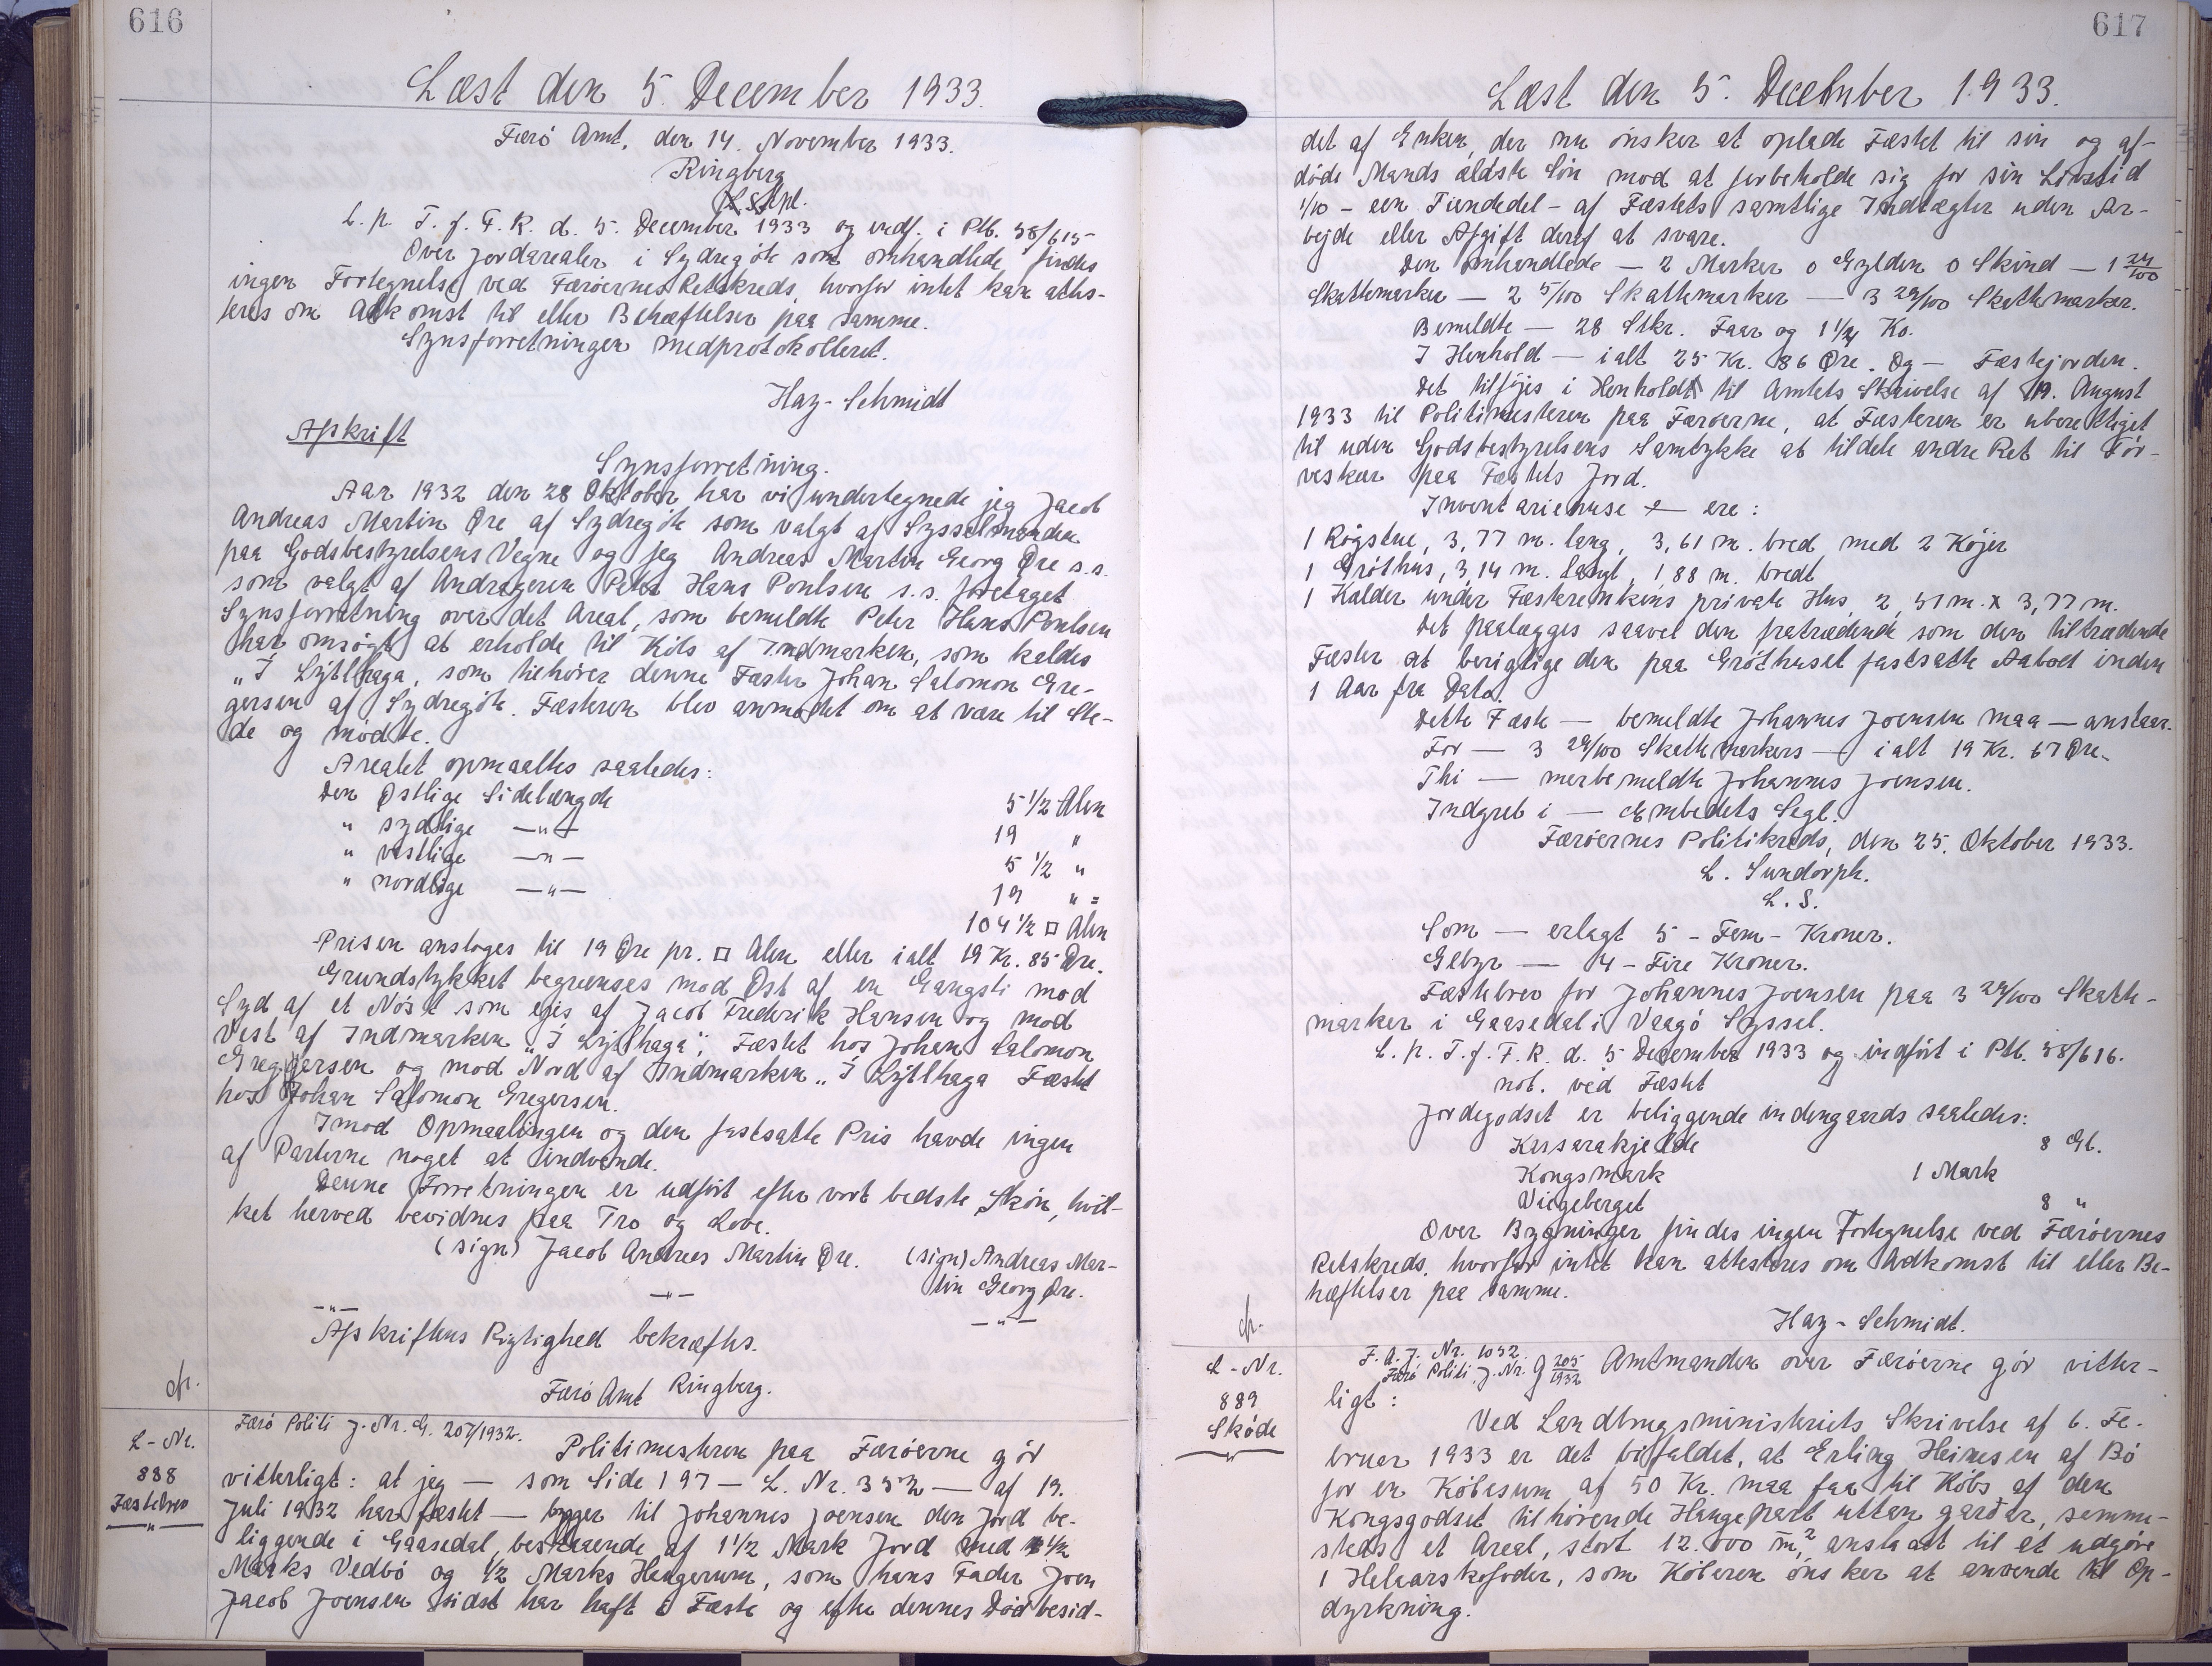 616
Læst den 5. December 1933.
Færö Amt, den 14. November 1933.
Ringberg
L. p. T. f. F. R. d. 5. December 1933 og indf. i Ptb. 38/615
Over Jordarealer i Sydregöte som omhandlede findes
ingen Fortegnelse ved Færöernes Retskreds, hvorfor intet kan attes-
teres om Adkomst til eller Behæftelser paa samme.
Synsforretningen medprotokolleret.
Hay-Schmidt
Afskrift
Synsforretning.
Aar 1932 den 28 Oktober har vi undertegnede jeg Jacob
Andreas Martin Øre af Sydregöte som valgt af Sysselmanden
paa Godsbestyrelsens Vegne og jeg Andreas Martin Georg Øre s.s.
som valgt af Andrageren Peter Hans Poulsen s.s. foretaget
Synsforretning over det Areal, som bemeldte Peter Hans Poulsen
har ansögt at erholde til Köbs af Indmarken, som kaldes
„Í Lýtlhaga, som tilhörer denne Fæster Johan Salomon Gre-
gersen af Sydregöte. Fæsteren blev anmodet om at være til Ste-
de og mödte.
Arealet opmaaltes saaledes:
Den Østlige Sidelængde 5 1/2 Alen
" sydlige —"— 19 "
" vestlige —"— 5 1/2 "
" nordlige —"— 19 " =
104 1/2 □ Alen
Prisen ansloges til 19 Øre pr. □ Alen eller ialt 19 Kr. 85 Øre.
Grundstykket begrænses mod Øst af en Gangsti mod
Syd af et Nöst som ejes af Jacob Frederik Hansen og mod
Vest af Indmarken „Í Lýtlhaga", Fæstet hos Johan Salomon
Greggersen og mod Nord af Indmarken „Í Lýtlhaga Fæstet
hos Johan Salomon Gregersen.
Imod Opmaalingen og den fastsatte Pris havde ingen
af Parterne noget at indvende.
Denne Forretningen er udfört efter vort bedste Skön, hvil-
ket herved bevidnes paa Tro og Love.
(sign) Jacob Andreas Martin Øre. (sign) Andreas Mar-
tin Georg Øre.
—"— —"— —"—
Afskriftens Rigtighed bekræftes.
Færö Amt Ringberg.
L-Nr.
888
Fæstebrev
—"—
Færö Politi J. Nr. G. 207/1932.
Politimesteren paa Færöerne gör
vitterligt: at jeg — som Side 197 — L. Nr. 332 — af 19.
Juli 1932 har fæstet — bygger til Johannes Joensen den Jord be-
liggende i Gaasedal, bestaaende af 1 1/2 Mark Jord med 1/2
Marks Vedbö og 1/2 Marks Haugerum, som hans Fader Joen
Jacob Joensen sidst har haft i Fæste og efter dennes Död besid-
617
Læst den 5. December 1933.
det af Enken, der nu önsker at oplade Fæstet til sin og af-
döde Mands ældste Sön mod at forbeholde sig for sin Livstid
1/10 - een Tiendedel - af Fæstets samtlige Indtægter uden Ar-
bejde eller Afgift deraf at svare.
Den omhandlede — 2 Marker 0 Gylden 0 Skind — 1 24/100
Skattemarker — 2 5/100 Skattemarker — 3 29/100 Skattemarker.
Bemeldte — 28 Stkr. Faar og 1 1/4 Ko.
I Henhold — ialt 25 Kr. 86 Øre. Og — Fæstejorden.
Det tilföjes i Henhold til Amtets Skrivelse af 19. August
1933 til Politimesteren paa Færöerne, at Fæsteren er uberettiget
til uden Godsbestyrelsens Samtykke at tildele andre Ret til Tör-
veskær paa Fæstets Jord.
Inventariehuse — ere:
1 Rögstue, 3,77 m. lang, 3,61 m. bred, med 2 Köjer
1 Gróthus, 3,14 m. langt, 1,88 m. bredt
1 Kælder under Fæsterenkens private Hus, 2,51 m. x 3,77 m.
Det paalægges saavel den fratrædende som den tiltrædende
Fæster at berigtige den paa Gróthuset fastsatte Aabod inden
1 Aar fra Dato.
Dette Fæste — bemeldte Johannes Joensen maa — anstaar.
For — 3 29/100 Skattemarkers — ialt 19 Kr. 67 Øre.
Thi — merbemeldte Johannes Joensen.
Indgreb i — Embedets Segl.
Færöernes Politikreds, den 25. Oktober 1933.
L. Sundorph.
L. S.
Som — erlagt 5 - Fem - Kroner.
Gebyr — 4 - Fire Kroner.
Fæstebrev for Johannes Joensen paa 3 29/100 Skatte-
marker i Gaasedal i Vaagö Syssel.
L. p. T. f. F. R. d. 5 December 1933 og indfört i Ptb. 38/616.
not. ved Fæstet
Jordegodset er beliggende indengaards saaledes:
Kisarakjelde 8 Gl.
Kongsmark 1 Mark
Viigeberget 8 "
Over Bygninger findes ingen Fortegnelse ved Færöernes
Retskreds, hvorfor intet kan attesteres om Adkomst til eller Be-
hæftelser paa samme.
Hay-Schmidt.
L-Nr.
889
Sköde
F. A. J. Nr. 1032.
Færö Politi J. Nr. G 205/1932
Amtmanden over Færöerne gör vitter-
ligt:
Ved Landbrugsministeriets Skrivelse af 6. Fe-
bruar 1933 er det bifaldet, at Erling Heinesen af Bö
for en Köbesum af 50 Kr. maa faa til Köbs af den
Kongsgodset tilhörende Haugepart uttan garðar, samme-
steds et Areal, stort 12.000 m², anslaaet til at udgöre
1 Helaarskofoder, som Köberen önsker at anvende til Op-
dyrkning.